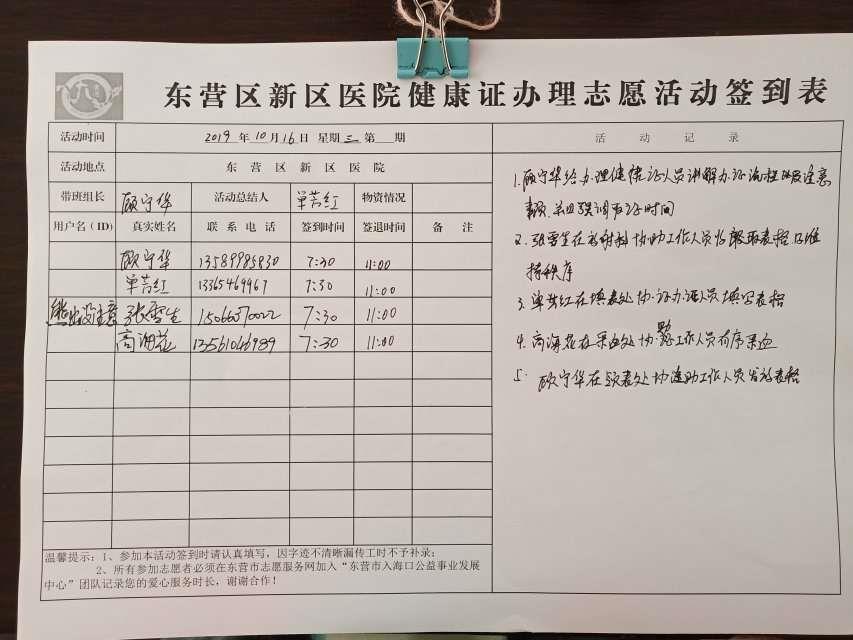 东营区新区医院健康证办理志愿活动签到表
活动时间 2019年10月16日 星期三 第 期 活动记录
活动地点 东营区新区医院
带班组长 顾守华 活动总结人 单芳红 物资情况
用户名(ID) 真实姓名 联系电话 签到时间 签退时间 备注
顾守华 13589985830 7:30 11:00
单芳红 13365469967 7:30 11:00
张雪生 15066070022 7:30 11:00
高海花 13561046989 7:30 11:00
1.顾守华给办理健康证人员讲解办证流程以及注意
事项,并且强调取证时间
2.张雪生在 协助工作人员 表格
持秩序
3.单芳红在填表处协 办证人员填写表格
4.高海花在采血处协助工作人员有序采血
5. 顾守华在领表处协助工作人员发放表格
温馨提示:1、参加本活动签到时请认真填写,因字迹不清晰漏传工时不予补录;
2、所有参加志愿者必须在东营市志愿服务网加入“东营市入海口公益事业发展
中心”团队记录您的爱心服务时长,谢谢合作!